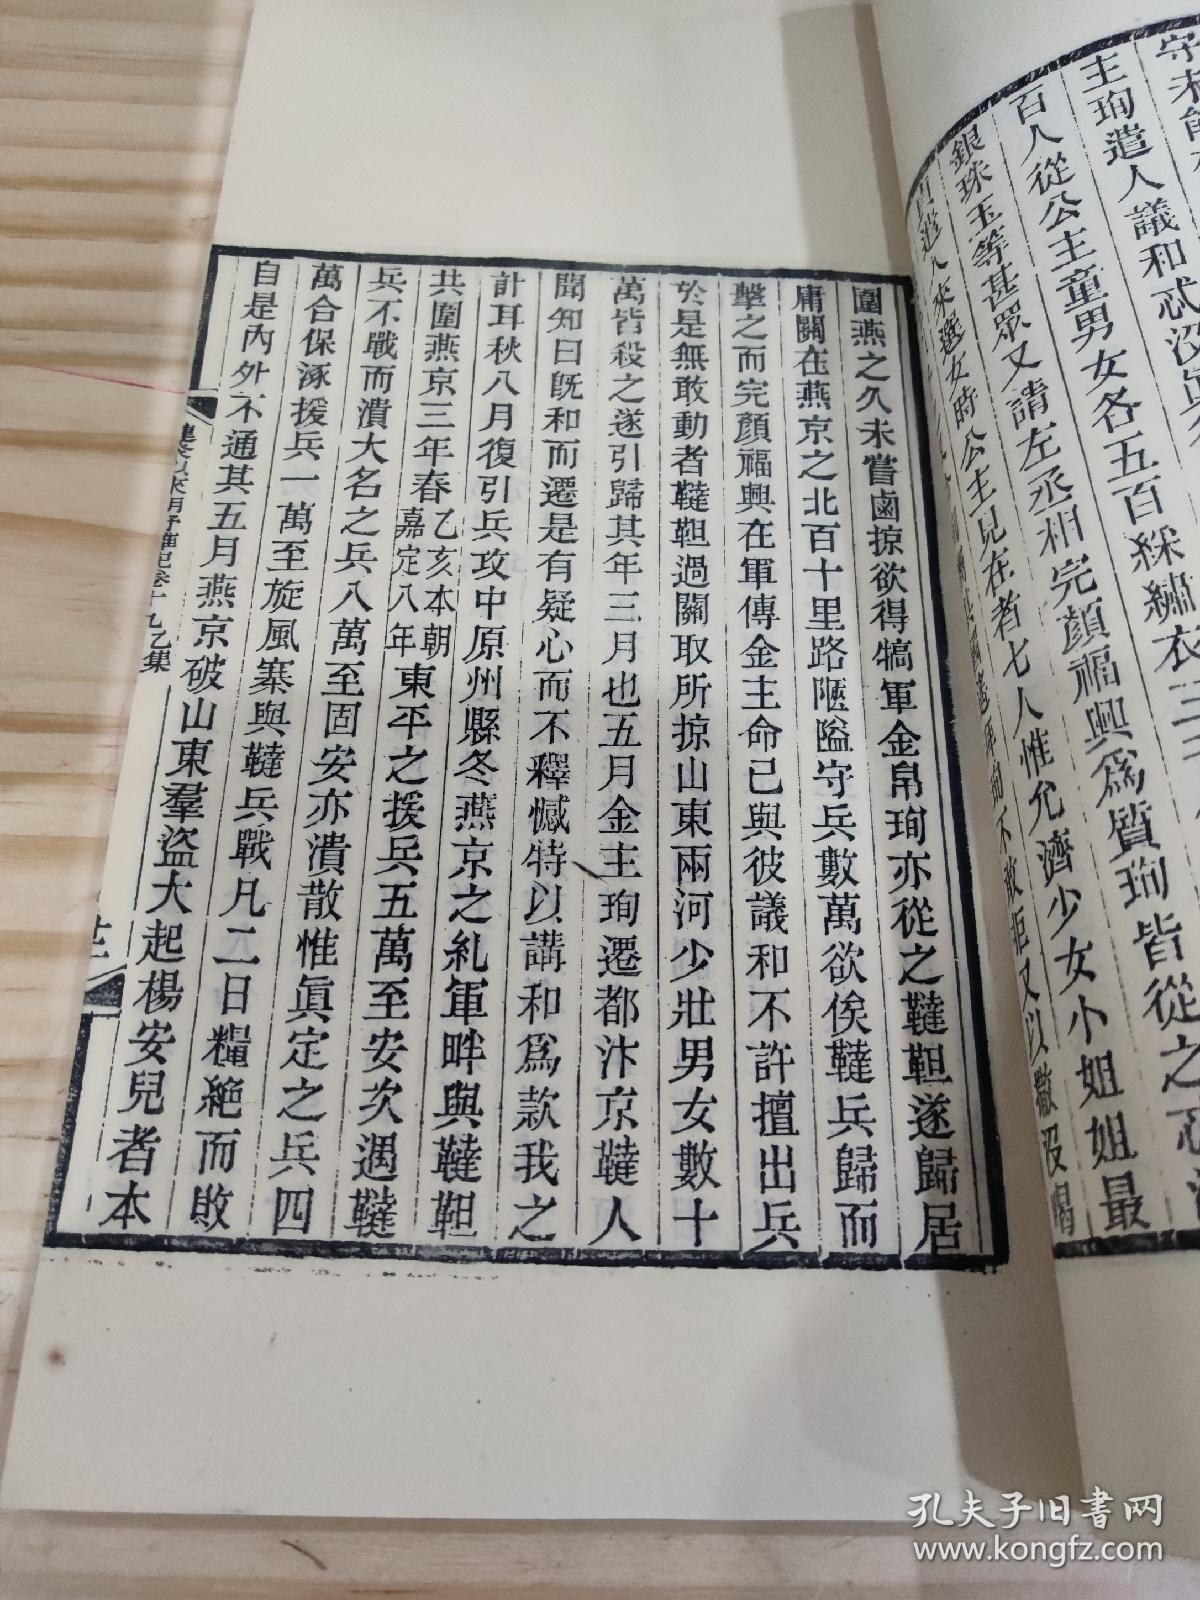 主珣遣人議和忒沒
百人從公主童男女各五百綵繡衣三
銀珠玉等甚眾又請左丞相完顏福興爲質珣皆從之
來選女時公主見在者七人惟允濟少女小姐姐最
圍燕之久未嘗鹵掠欲得犒軍金帛珣亦從之韃靼遂歸居
庸關在燕京之北百十里路陿隘守兵數萬欲俟韃兵歸而
擊之而完顏福興在軍傳金主命已與彼議和不許擅出兵
於是無敢動者韃靼過關取所掠山東兩河少壯男女數十
萬皆殺之遂引歸其年三月也五月金主珣遷都汴京韃人
聞知曰既和而遷是有疑心而不釋憾特以講和爲款我之
計耳秋八月復引兵攻中原州縣冬燕京之乣軍畔與韃靼
共圍燕京三年春乙亥本朝嘉定八年東平之援兵五萬至安次遇韃
兵不戰而潰大名之兵八萬至固安亦潰散惟眞定之兵四
萬合保涿援兵一萬至旋風寨與韃兵戰凡二日糧絕而敗
自是內外不通其五月燕京破山東羣盜大起楊安兒者本
建炎以來朝野雜記卷十九乙集
孔夫子旧书网
www.kongfz.com